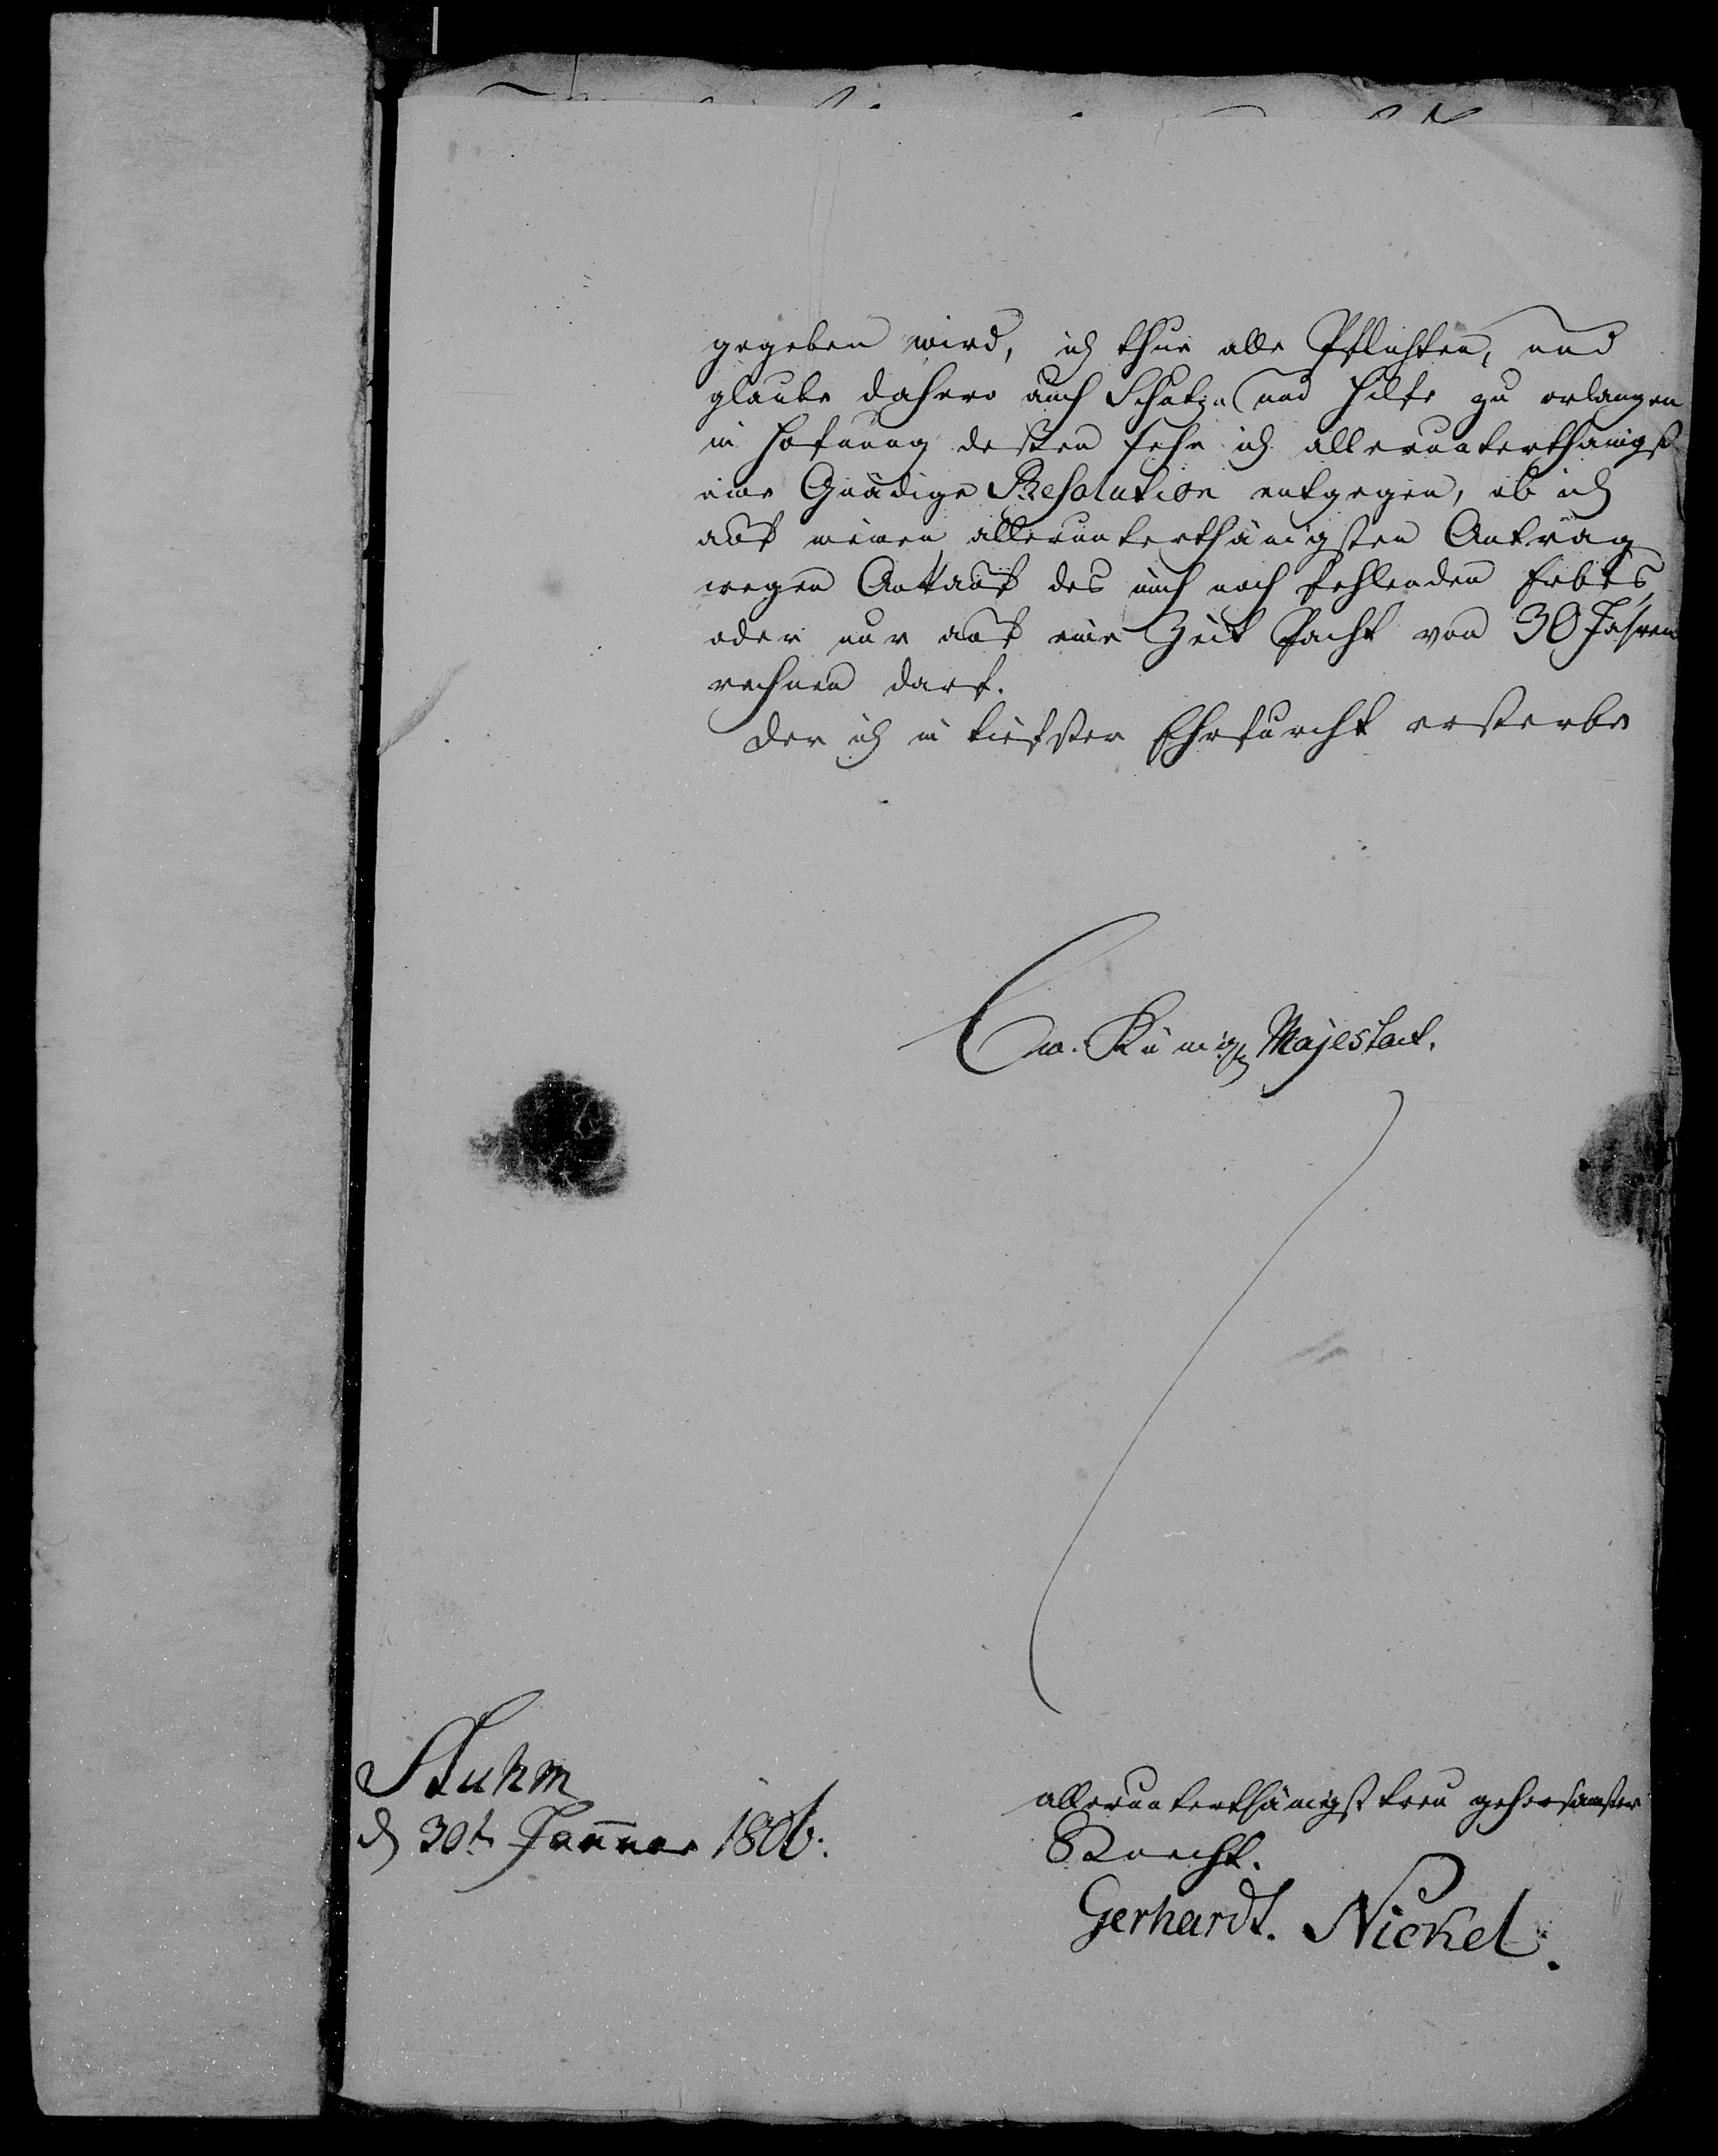 gegeben wird, ich thue alle Pflichten, und
glaube dahero auch Schutz und Hilfe zu erlangen
in Hofnung dessen sehe ich allerunterthänigst
eine Gnädige Resolution entgegen, ob ich
auf meinen allerunterthänigsten Antrag
wegen Ankauf des mich noch fehlenden Erbes,
oder nur auf eine Zeit Pacht von 30 Jahren
rechnen darf.
Der ich in tiefster Ehrfurcht ersterbe
Ew. Königl Majestaet.
Stuhm
d 30t Januar 1806.
allerunterthänigst treu gehorsamster
Knecht.
Gerhardt. Nickel.